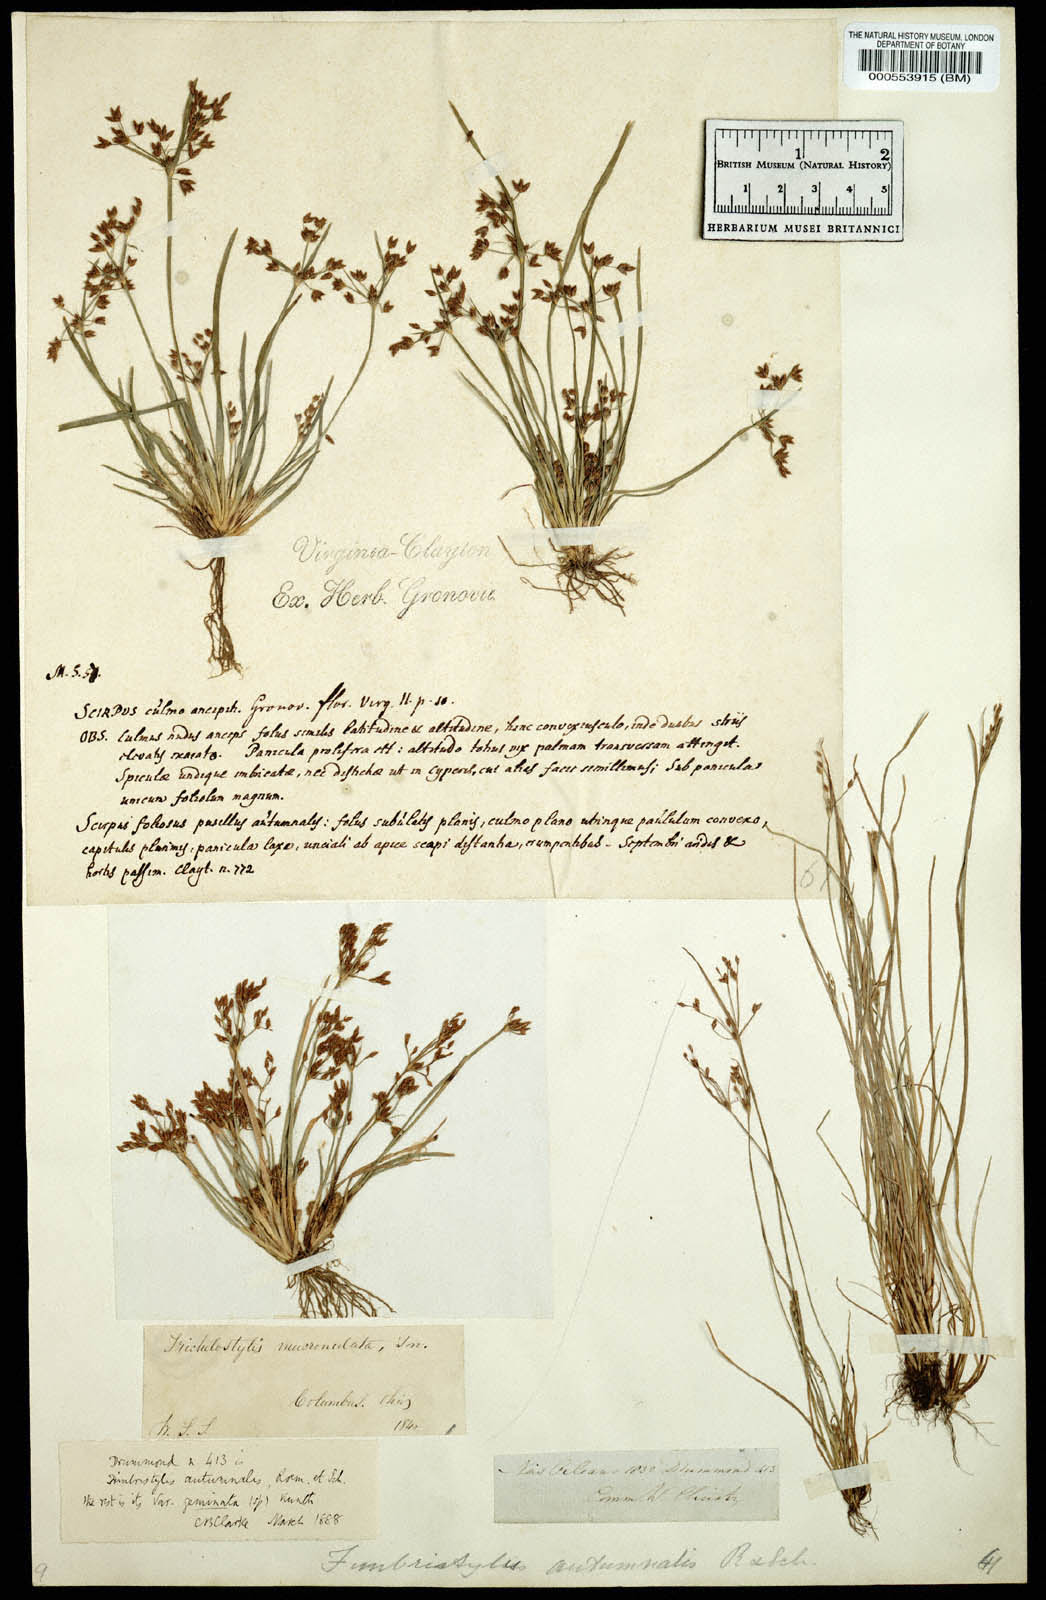 THE NATURAL HISTORY MUSEUM, LONDON
DEPARTMENT OF BOTANY
000553915 (BM)
1 2
BRITISH MUSEUM (NATURAL HISTORY)
1 2 3 4 5
HERBARIUM MUSEI BRITANNICI
Virginia-Clayton
Ex. Herb. Gronovii
SCIRPUS culmo ancipiti. Gronov. flor. Virg. II. p. 10.
OBS. Culmus nudus anceps foliis similis latitudine & altitudine, hinc convexiusculo, inde duabus striis
elevatis exarato. Panicula prolifera est: altitudo totius vix palmam transversam attinget.
Spiculæ undique imbicatæ, nec distichæ ut in cyperis, cui alias facie simillimus; Sub panicula
unicum foliolum magnum.
Scirpus foliosus pusillus autumnalis: foliis subulatis planis, culmo plano utrinque paululum convexo,
capitulis plurimis, panicula laxa, unciali ab apice scapi distantia, erumpentibus. Septembri &
hortis passim. Clayt. n. 772
61
Trichelostylis mucronulata, Torr.
Columbus. Ohio
184
W. S. S.
Drummond n. 413 is
Fimbristylis autumnalis, Roem. et Sch.
the rest is its Var. geminata (sp) Kunth
CBClarke March 1888
New Orleans 1832 Drummond 413
Comm W. Christy
Fimbristylis autumnalis R & Sch.
9